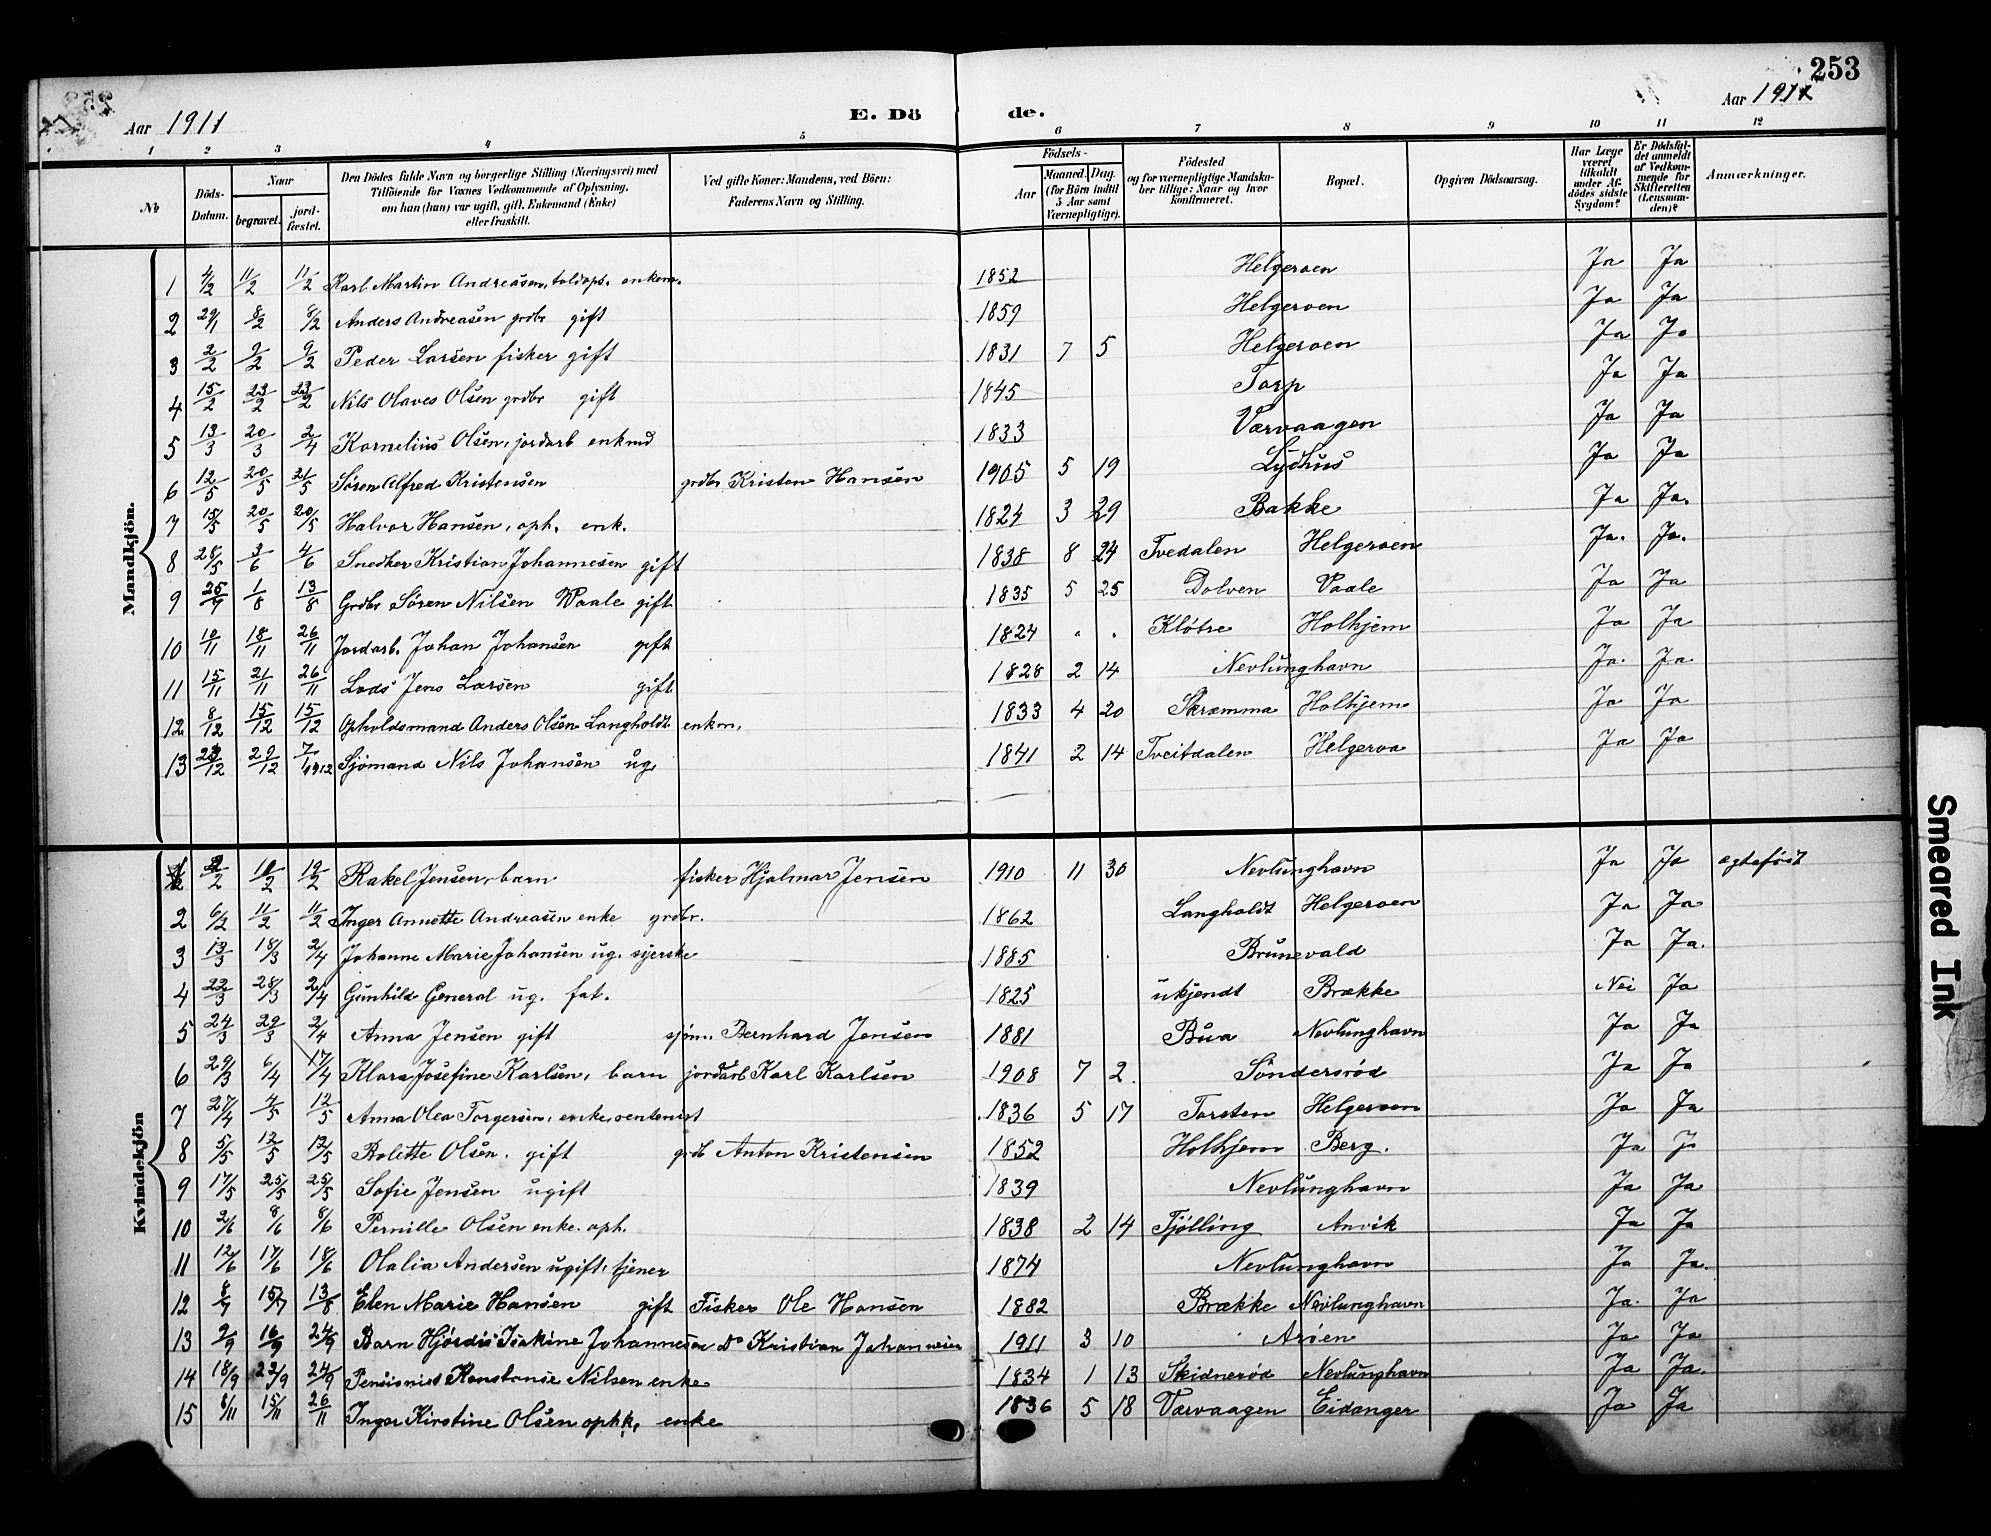 253
Aar 1911 E. Dö de. Aar 1911
1 2 3 4 5 6 7 8 9 10 11 12
№ Döds-Datum. Naar begravet. jordfæstet. Den Dödes fulde Navn og borgerlige Stilling (Næringsvei) med Tilföiende for Voxnes Vedkommende af Oplysning, om han (hun) var ugift, gift, Enkemand (Enke) eller fraskilt. Ved gifte Koner: Mandens, ved Börn: Faderens Navn og Stilling. Födsels- Aar Maaned. Dag. (for Börn indtil 5 Aar samt Værnepligtige). Födested og for værnepligtige Mandskaber tillige: Naar og hvor konfirmeret. Bopæl. Opgiven Dödsaarsag. Har Læge været tilkaldt under Afdödes sidste Sygdom? Er Dödsfaldet anmeldt af Vedkommende for Skifteretten (Lensmanden)? Anmærkninger.
Mandkjön.
1 4/2 11/2 11/2 Karl Martin Andreasen, toldops. enkem. 1852 Helgeroen Ja Ja
2 29/1 8/2 8/2 Anders Andreasen grdbr gift 1859 Helgeroen Ja Ja
3 2/2 9/2 9/2 Peder Larsen fisker gift 1831 7 5 Helgeroen Ja Ja
4 15/2 23/2 23/2 Nils Olaves Olsen grdbr gift 1845 Torp Ja Ja
5 13/3 20/3 2/4 Kornelius Olsen, jordarb enkmd 1833 Værvaagen Ja Ja
6 12/5 20/5 21/5 Søren Alfred Kristensen grdbr Kristen Hansen 1905 5 19 Lydhus Ja Ja
7 15/5 20/5 20/5 Halvor Hansen, oph. enk. 1824 3 29 Bakke Ja Ja.
8 28/5 3/6 4/6 Snedker Kristian Johannesen gift 1838 8 24 Tvedalen Helgeroen Ja. Ja.
9 25/7 1/8 13/8 Grdbr Søren Nilsen Vaale gift 1835 5 25 Dolven Vaale Ja Ja
10 10/11 18/11 26/11 Jordarb. Johan Johansen gift 1824 " " Kløtre Holhjem Ja Ja
11 15/11 21/11 26/11 Lods Jens Larsen gift 1828 2 14 Nevlunghavn Ja. Ja
12 8/12 15/12 15/12 Opholdsmand Anders Olsen Langholdt enkm. 1833 4 20 Skræmma Holhjem Ja Ja
13 /12 29/12 7/1 1912 Sjömand Nils Johansen ug. 1841 2 14 Tveitdalen Helgeroa Ja Ja
Kvindekjön
1 /2 /2 19/2 Rakel Jensen, barn fisker Hjalmar Jensen 1910 11 30 Nevlunghavn Ja Ja ægteføst
2 6/2 11/2 11/2 Inger Annette Andreasen enke grdbr. 1862 Langholdt Helgeroen Ja Ja
3 13/3 18/3 2/4 Johanne Marie Johansen ug. syerske 1885 Brunevald Ja Ja.
4 22/3 28/3 2/4 Gunhild General ug. fat. 1825 ukjendt Brække Nei Ja
5 24/3 29/3 2/4 Anna Jensen gift sjøm. Bernhard Jensen 1881 Bua Nevlunghavn Ja Ja
6 29/3 6/4 17/4 Klara Josefine Karlsen, barn jordarb Karl Karlsen 1908 7 2. Søndersrød Ja Ja
7 27/4 4/5 12/5 Anna Olea Torgersen, enke, rentenist 1836 5 17 Torsten Helgeroen Ja Ja
8 5/5 12/5 12/5 Bolette Olsen. gift grdb Anton Kristensen 1852 Holhjem Berg. Ja Ja
9 17/5 25/5 25/5 Sofie Jensen ugift 1839 Nevlunghavn Ja Ja
10 2/6 8/6 8/6 Pernille Olsen enke. oph. 1838 2 14 Tjølling Anvik Ja Ja
11 12/6 17/6 18/6 Olalia Andersen ugift, tjener 1874 Nevlunghavn Ja Ja.
12 8/7 15/7 13/8 Elen Marie Hansen gift Fisker Ole Hansen 1882 Brække Nevlunghavn Ja. Ja
13 9/9 16/9 24/9 Barn Hjördis Isakine Johannesen Do Kristian Johannesen 1911 3 10 Arøen Ja Ja
14 18/9 23/9 24/9 Pensionist Konstanse Nilsen enke 1834 1 13 Skidnerød Nevlunghavn Ja Ja.
15 8/11 15/11 26/11 Inger Kirstine Olsen ophk, enke 1836 5 18 Værvaagen Eidanger Ja Ja
Smeared Ink